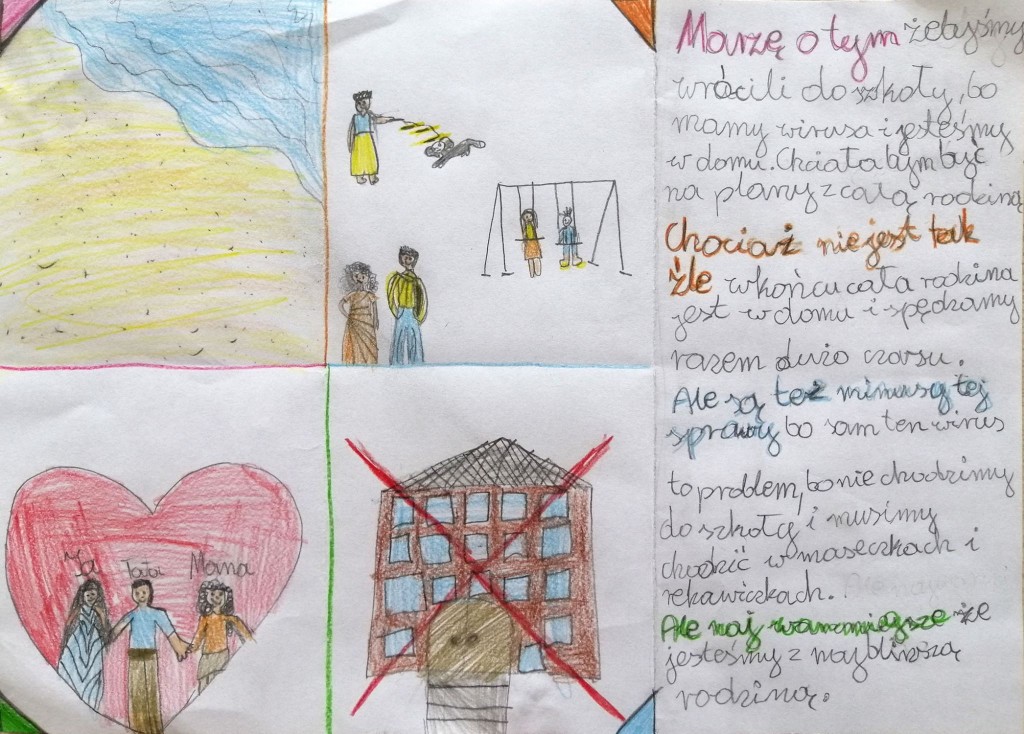 Marzę o tym żebyśmy
wrócili do szkoły, bo
mamy wirusa i jesteśmy
w domu. Chciała bym być
na plaży z całą rodziną
Chociaż nie jest tak
źle w końcu cała rodzina
jest w domu i spędzamy
razem dużo czarsu.
Ale są też minusy tej
sprawy bo sam ten wirus
to problem, bo nie chodzimy
do szkoły i musimy
chodzić w maseczkach i
rękawiczkach.
Ale naj warzniejsze że
jesteśmy z najbliższą
rodziną.
Ja Tata Mama